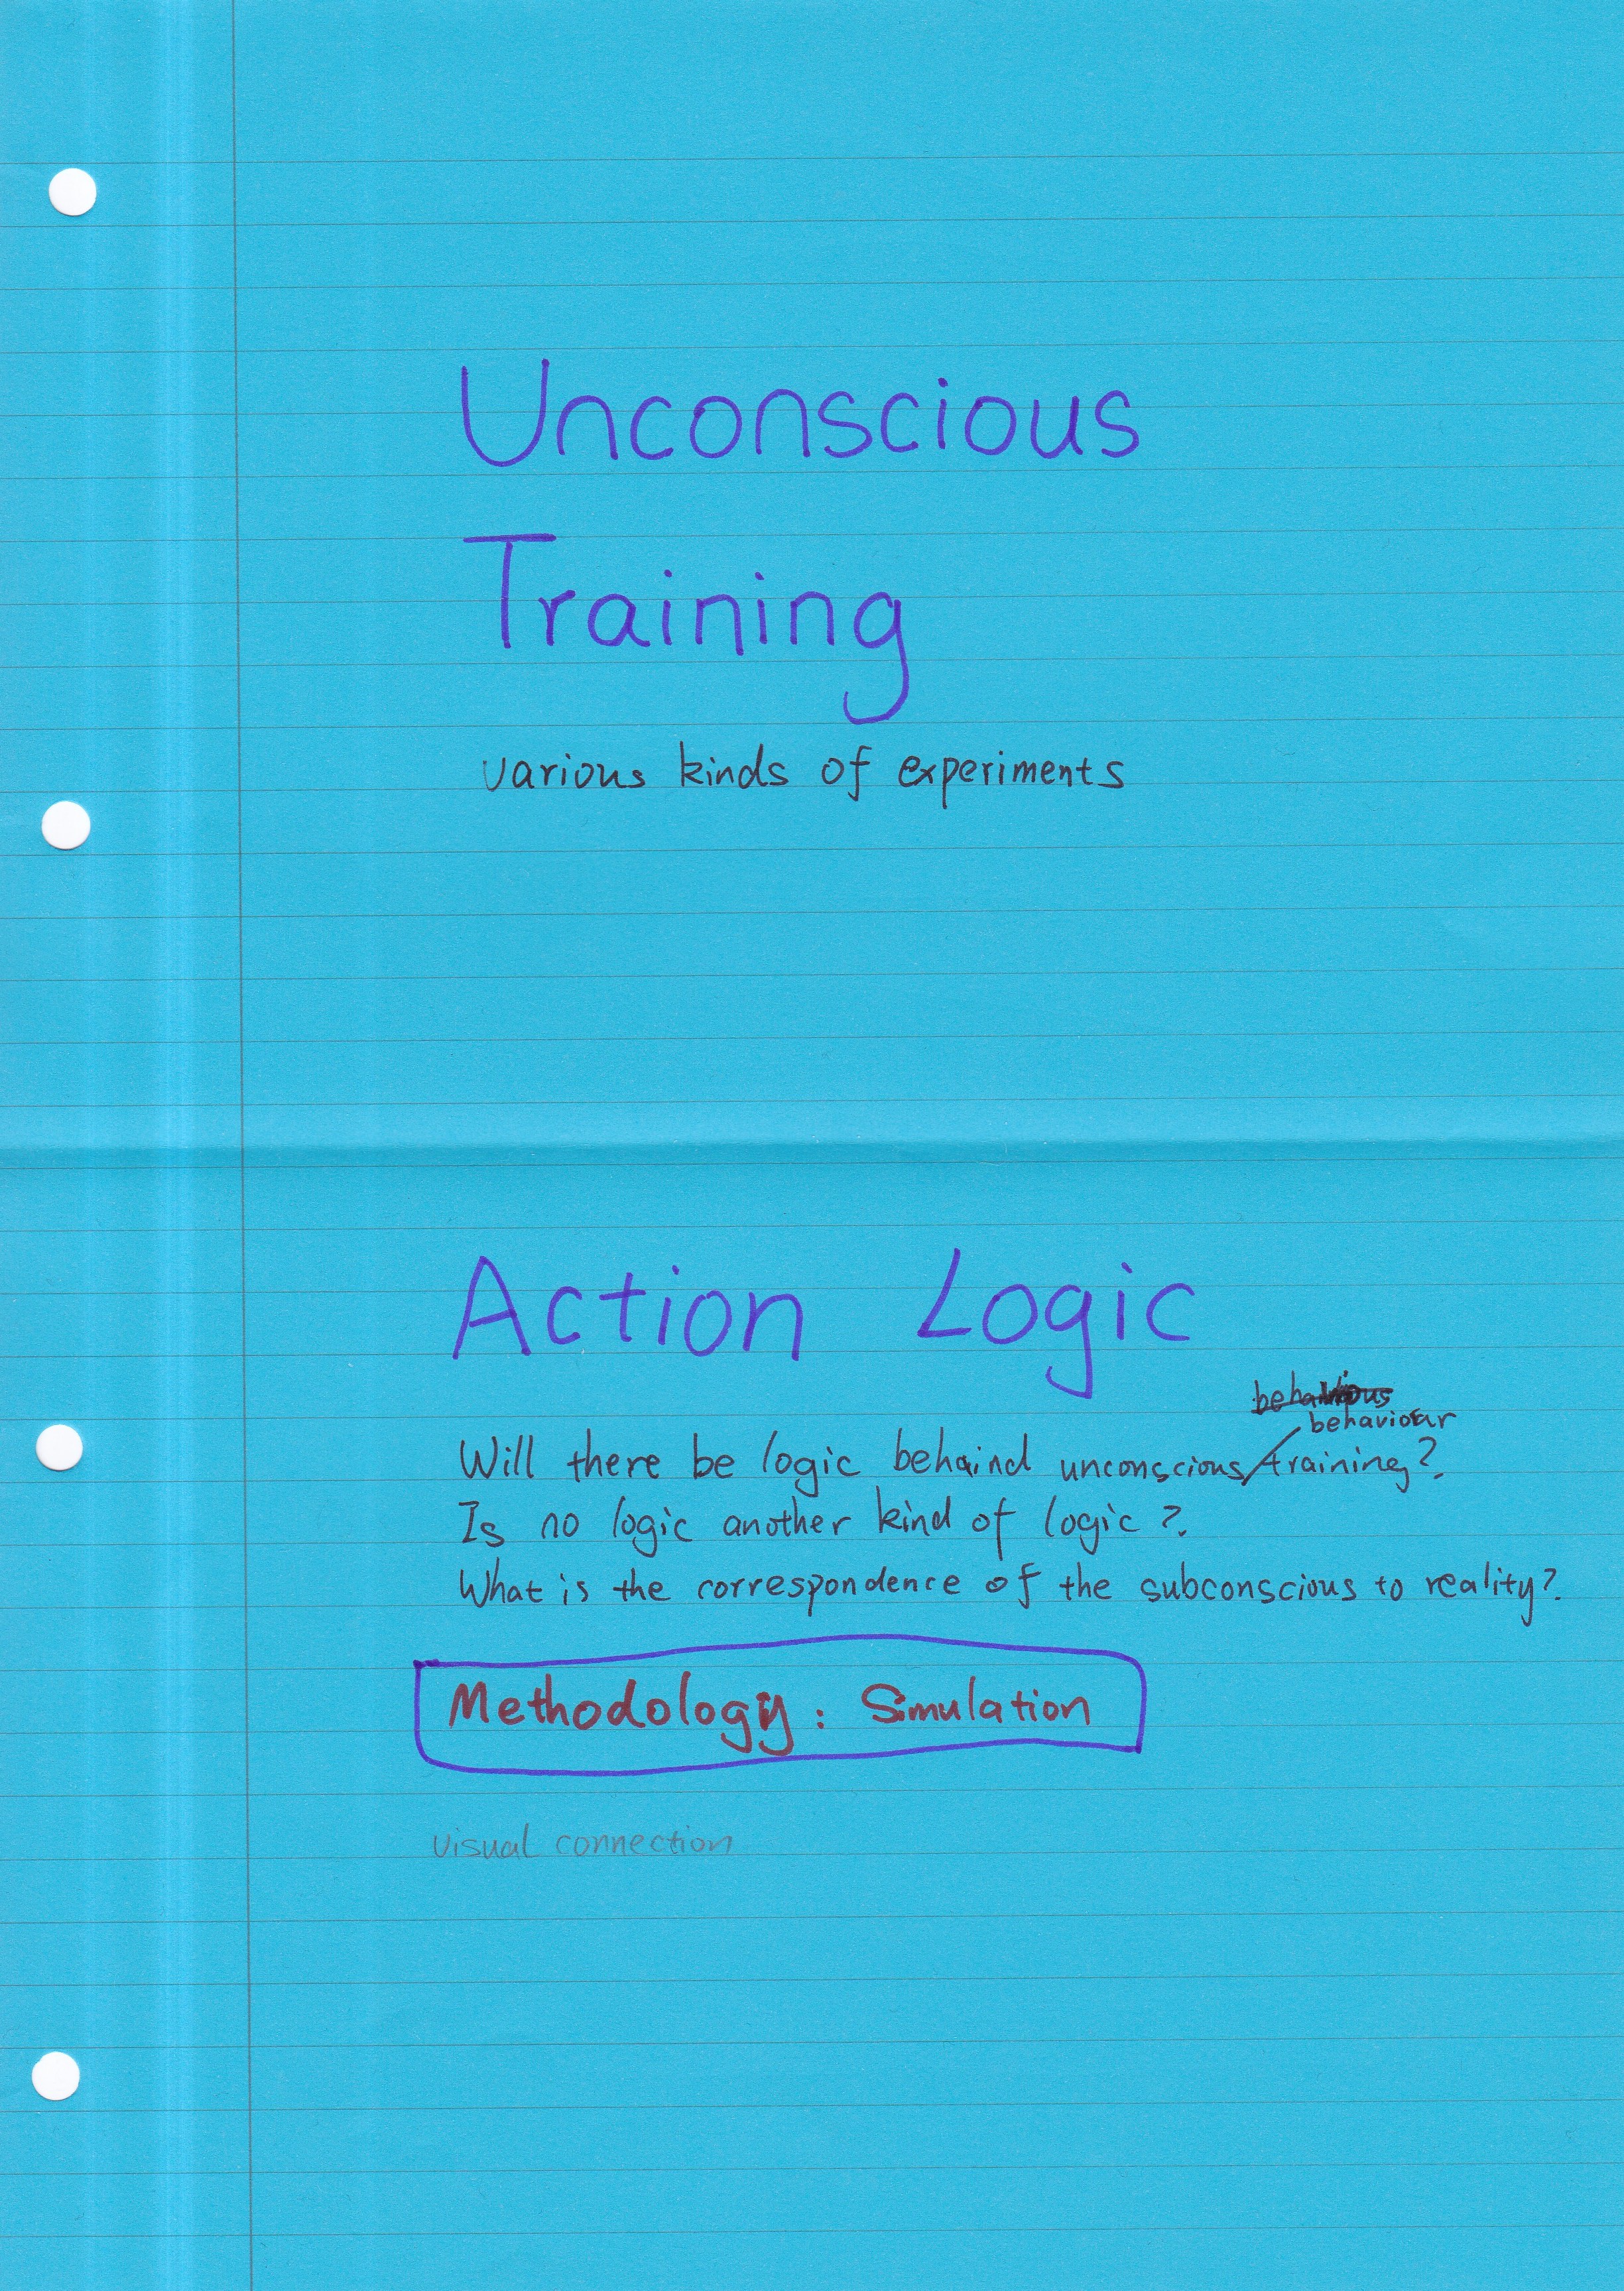 Unconscious
Training
various kinds of experiments
Action Logic
behaviour
Will there be logic behaind unconscious/training?
Is no logic another kind of logic?
What is the correspondence of the subconscious to reality?
Methodology: Simulation
visual connection